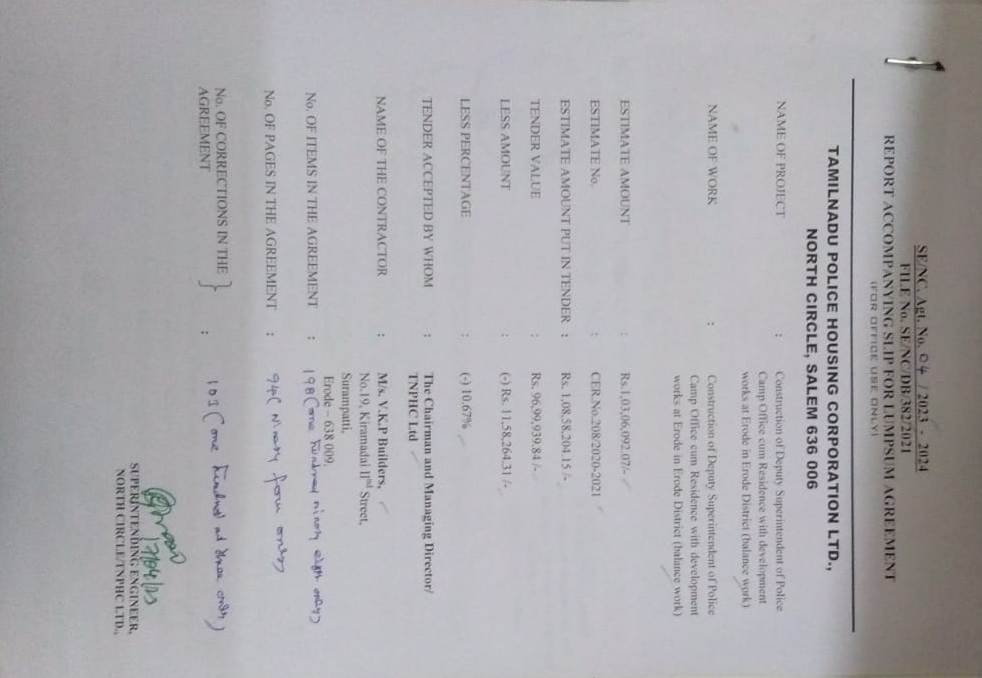 SE/NC. Agt. No. 04 / 2023 - 2024
FILE No. SE/NC/DB/382/2021
REPORT ACCOMPANYING SLIP FOR LUMPSUM AGREEMENT
(FOR OFFICE USE ONLY)
TAMILNADU POLICE HOUSING CORPORATION LTD.,
NORTH CIRCLE, SALEM 636 006
NAME OF PROJECT : Construction of Deputy Superintendent of Police
Camp Office cum Residence with development
works at Erode in Erode District (balance work)
NAME OF WORK : Construction of Deputy Superintendent of Police
Camp Office cum Residence with development
works at Erode in Erode District (balance work)
ESTIMATE AMOUNT : Rs.1,03,06,092.07/-
ESTIMATE No. : CER.No.208/2020-2021
ESTIMATE AMOUNT PUT IN TENDER : Rs. 1,08,58,204.15 /-
TENDER VALUE : Rs. 96,99,939.84 /-
LESS AMOUNT : (-) Rs. 11,58,264.31 /-
LESS PERCENTAGE : (-) 10.67%
TENDER ACCEPTED BY WHOM : The Chairman and Managing Director/
TNPHC Ltd
NAME OF THE CONTRACTOR : M/s. V.K.P Builders,
No.19, Kiramadai IInd Street,
Surampatti,
Erode – 638 009.
No. OF ITEMS IN THE AGREEMENT : 198 (one hundred ninety eight only)
No. OF PAGES IN THE AGREEMENT : 94 (Ninety four only)
No. OF CORRECTIONS IN THE } : 103 (one hundred and three only)
AGREEMENT
SUPERINTENDING ENGINEER,
NORTH CIRCLE/TNPHC LTD.,